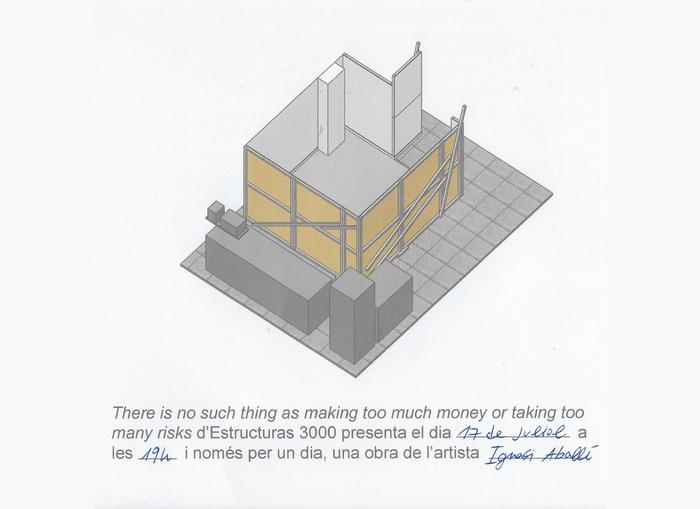 There is no such thing as making too much money or taking too
many risks d'Estructuras 3000 presenta el dia 17 de juliol a
les 19h i només per un dia, una obra de l'artista Ignasi Aballí